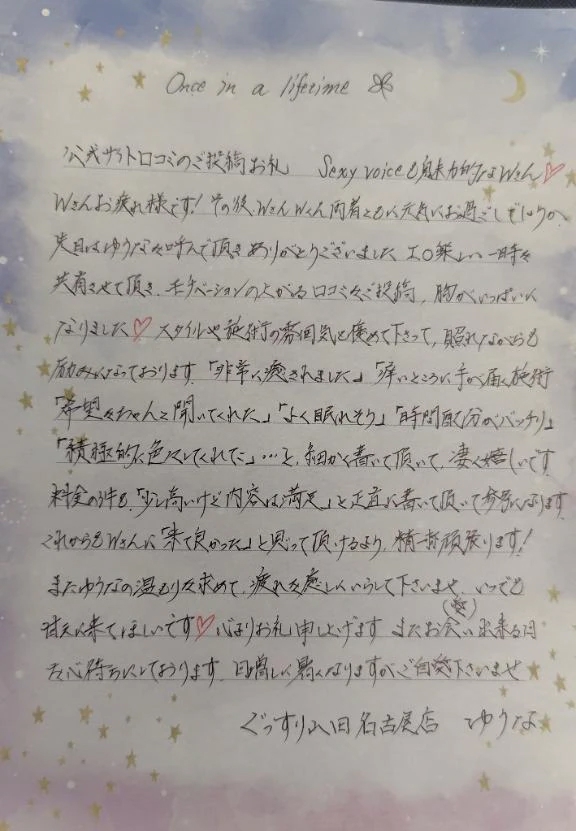 Once in a lifetime
公式サイト口コミのご投稿お礼 Sexy voiceも魅力的なWさん♡
Wさんお疲れ様です! その後、Wさん Wくん両者ともに元気にお過ごしでしょうか、
先日はゆうなを呼んで頂きありがとうございました エロ楽しい一時を
共有させて頂き、モチベーションの上がる口コミをご投稿、胸がいっぱいに
なりました♡ スタイルや施術の雰囲気を褒めて下さって、照れながらも
励みになっております、「非常に癒されました」「痒いところに手が届く施術」
「希望をちゃんと聞いてくれた」「よく眠れそう」「時間配分がバッチリ」
「積極的に色々してくれた」…と、細かく書いて頂いて、凄く嬉しいです
料金の件も、「少し高いけど内容は満足」と正直に書いて頂いて参考になります
これからもWさんに「来て良かった」と思って頂けるよう、精一杯頑張ります!
またゆうなの温もりを求めて、疲れを癒しにいらして下さいませ、いつでも
甘えに来てほしいです♡ 心よりお礼申し上げます またお会い出来る日
を心待ちにしております、日増しに暑くなりますがご自愛下さいませ
ぐっすり山田名古屋店 ゆうな